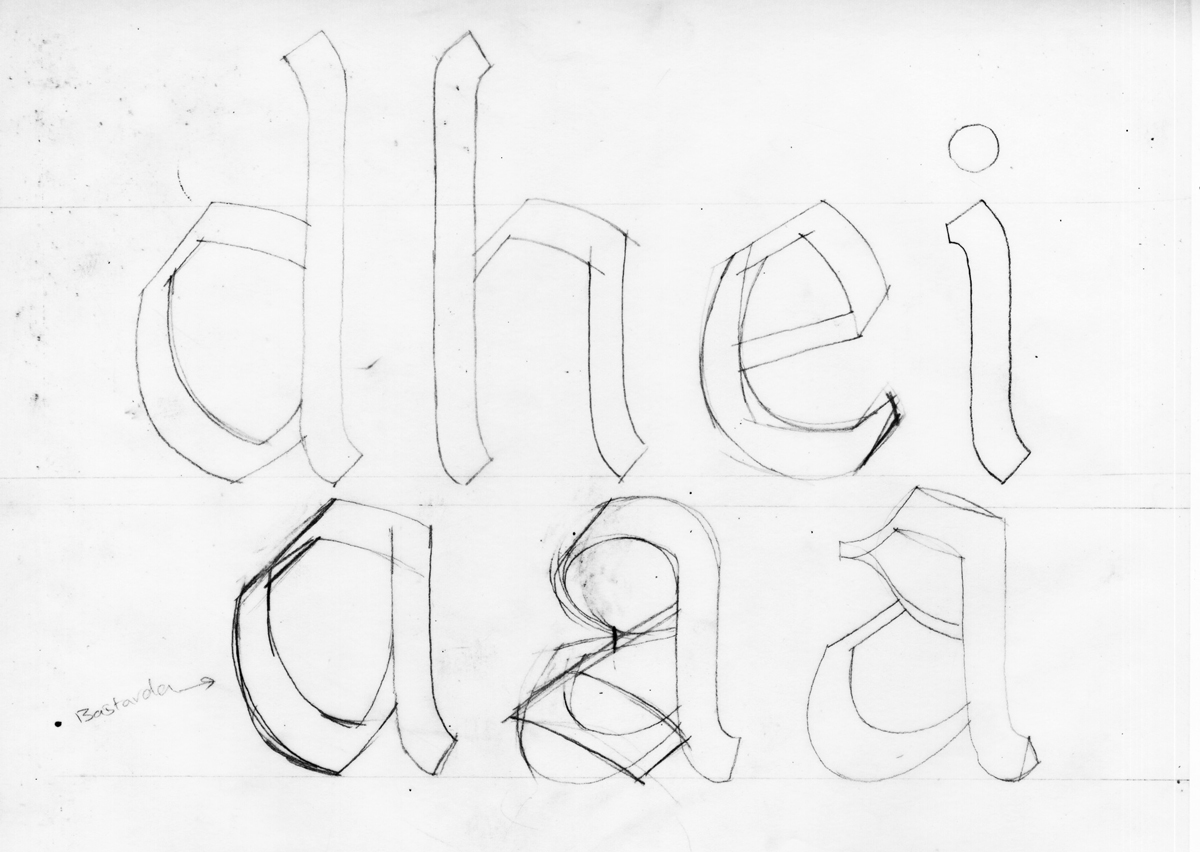 dhei
aaa
Bastarda